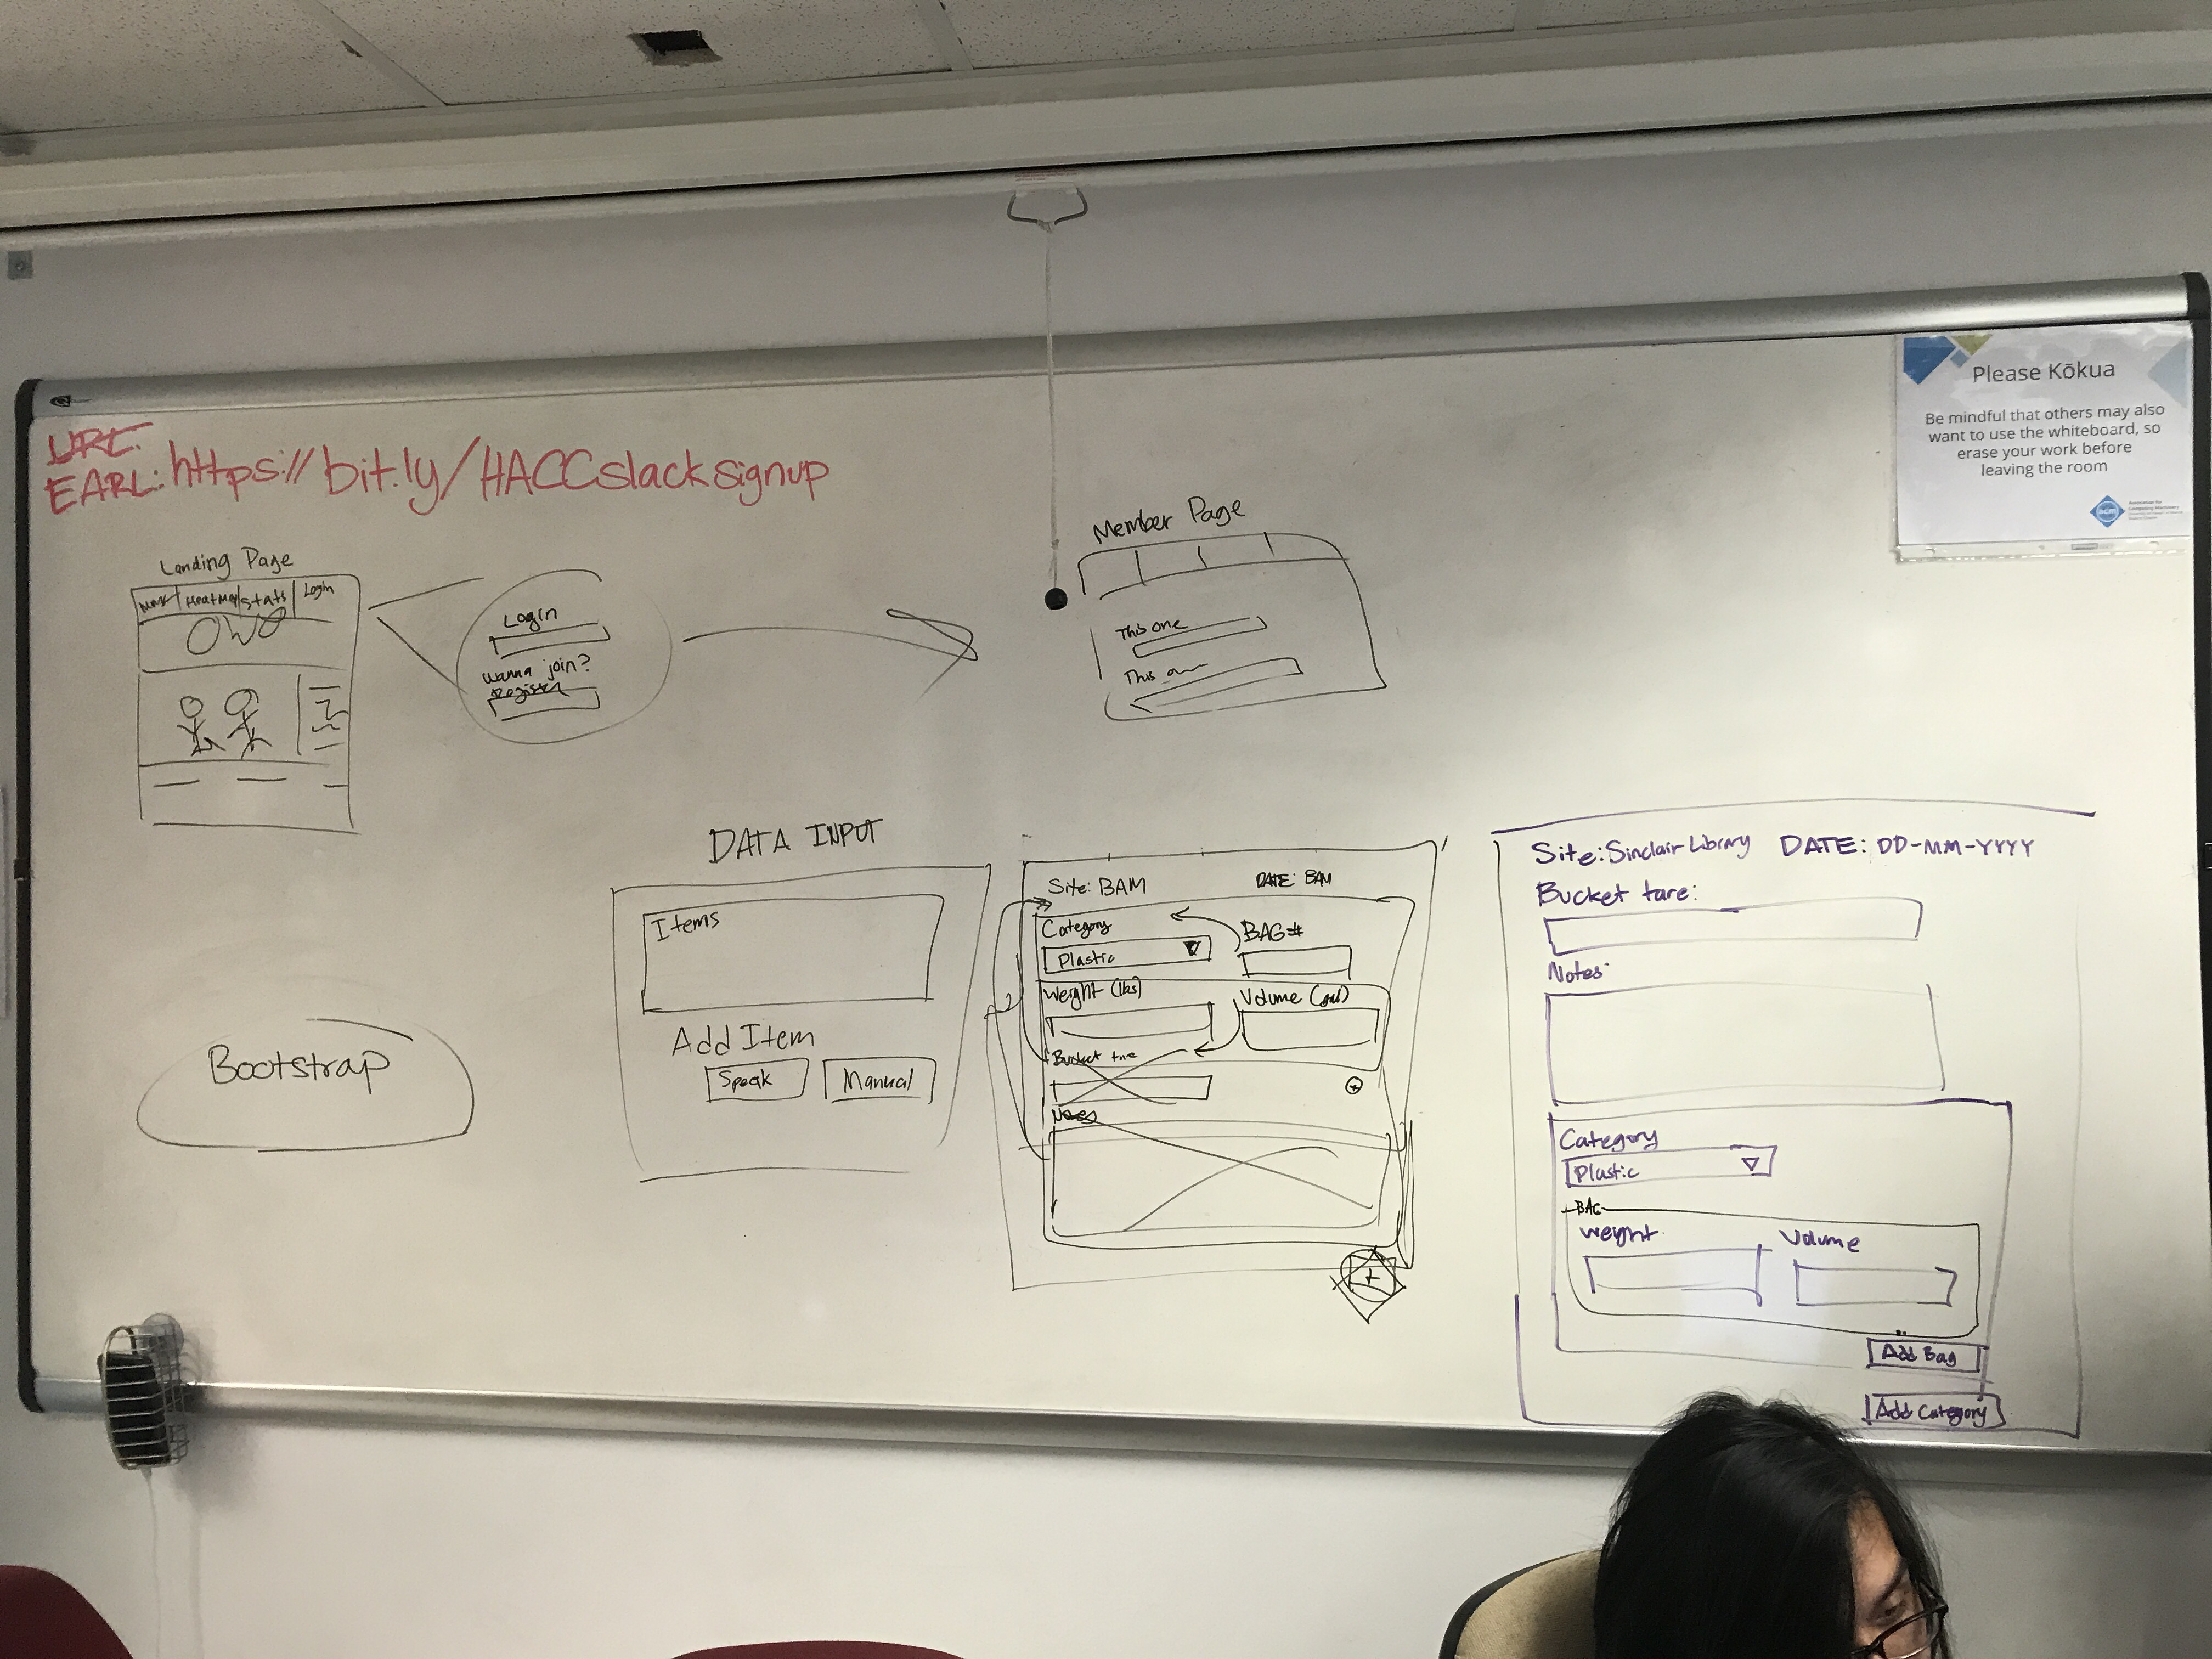 URL:
EARL: https://bit.ly/HACCslacksignup
Please Kōkua
Be mindful that others may also
want to use the whiteboard, so
erase your work before
leaving the room
acm
Association for
Computing Machinery
Landing Page
Heatmap
Stats
Login
OWO
Login
Wanna join?
Register
Member Page
This one
This one
Bootstrap
DATA INPUT
Items
Add Item
Speak
Manual
Site: BAM
DATE: BAM
Category
BAG#
Plastic
Weight (lbs)
Volume (gal)
Bucket tare
Notes
Site: Sinclair Library DATE: DD-MM-YYYY
Bucket tare:
Notes
Category
Plastic
BAG
Weight
Volume
Add Bag
Add Category